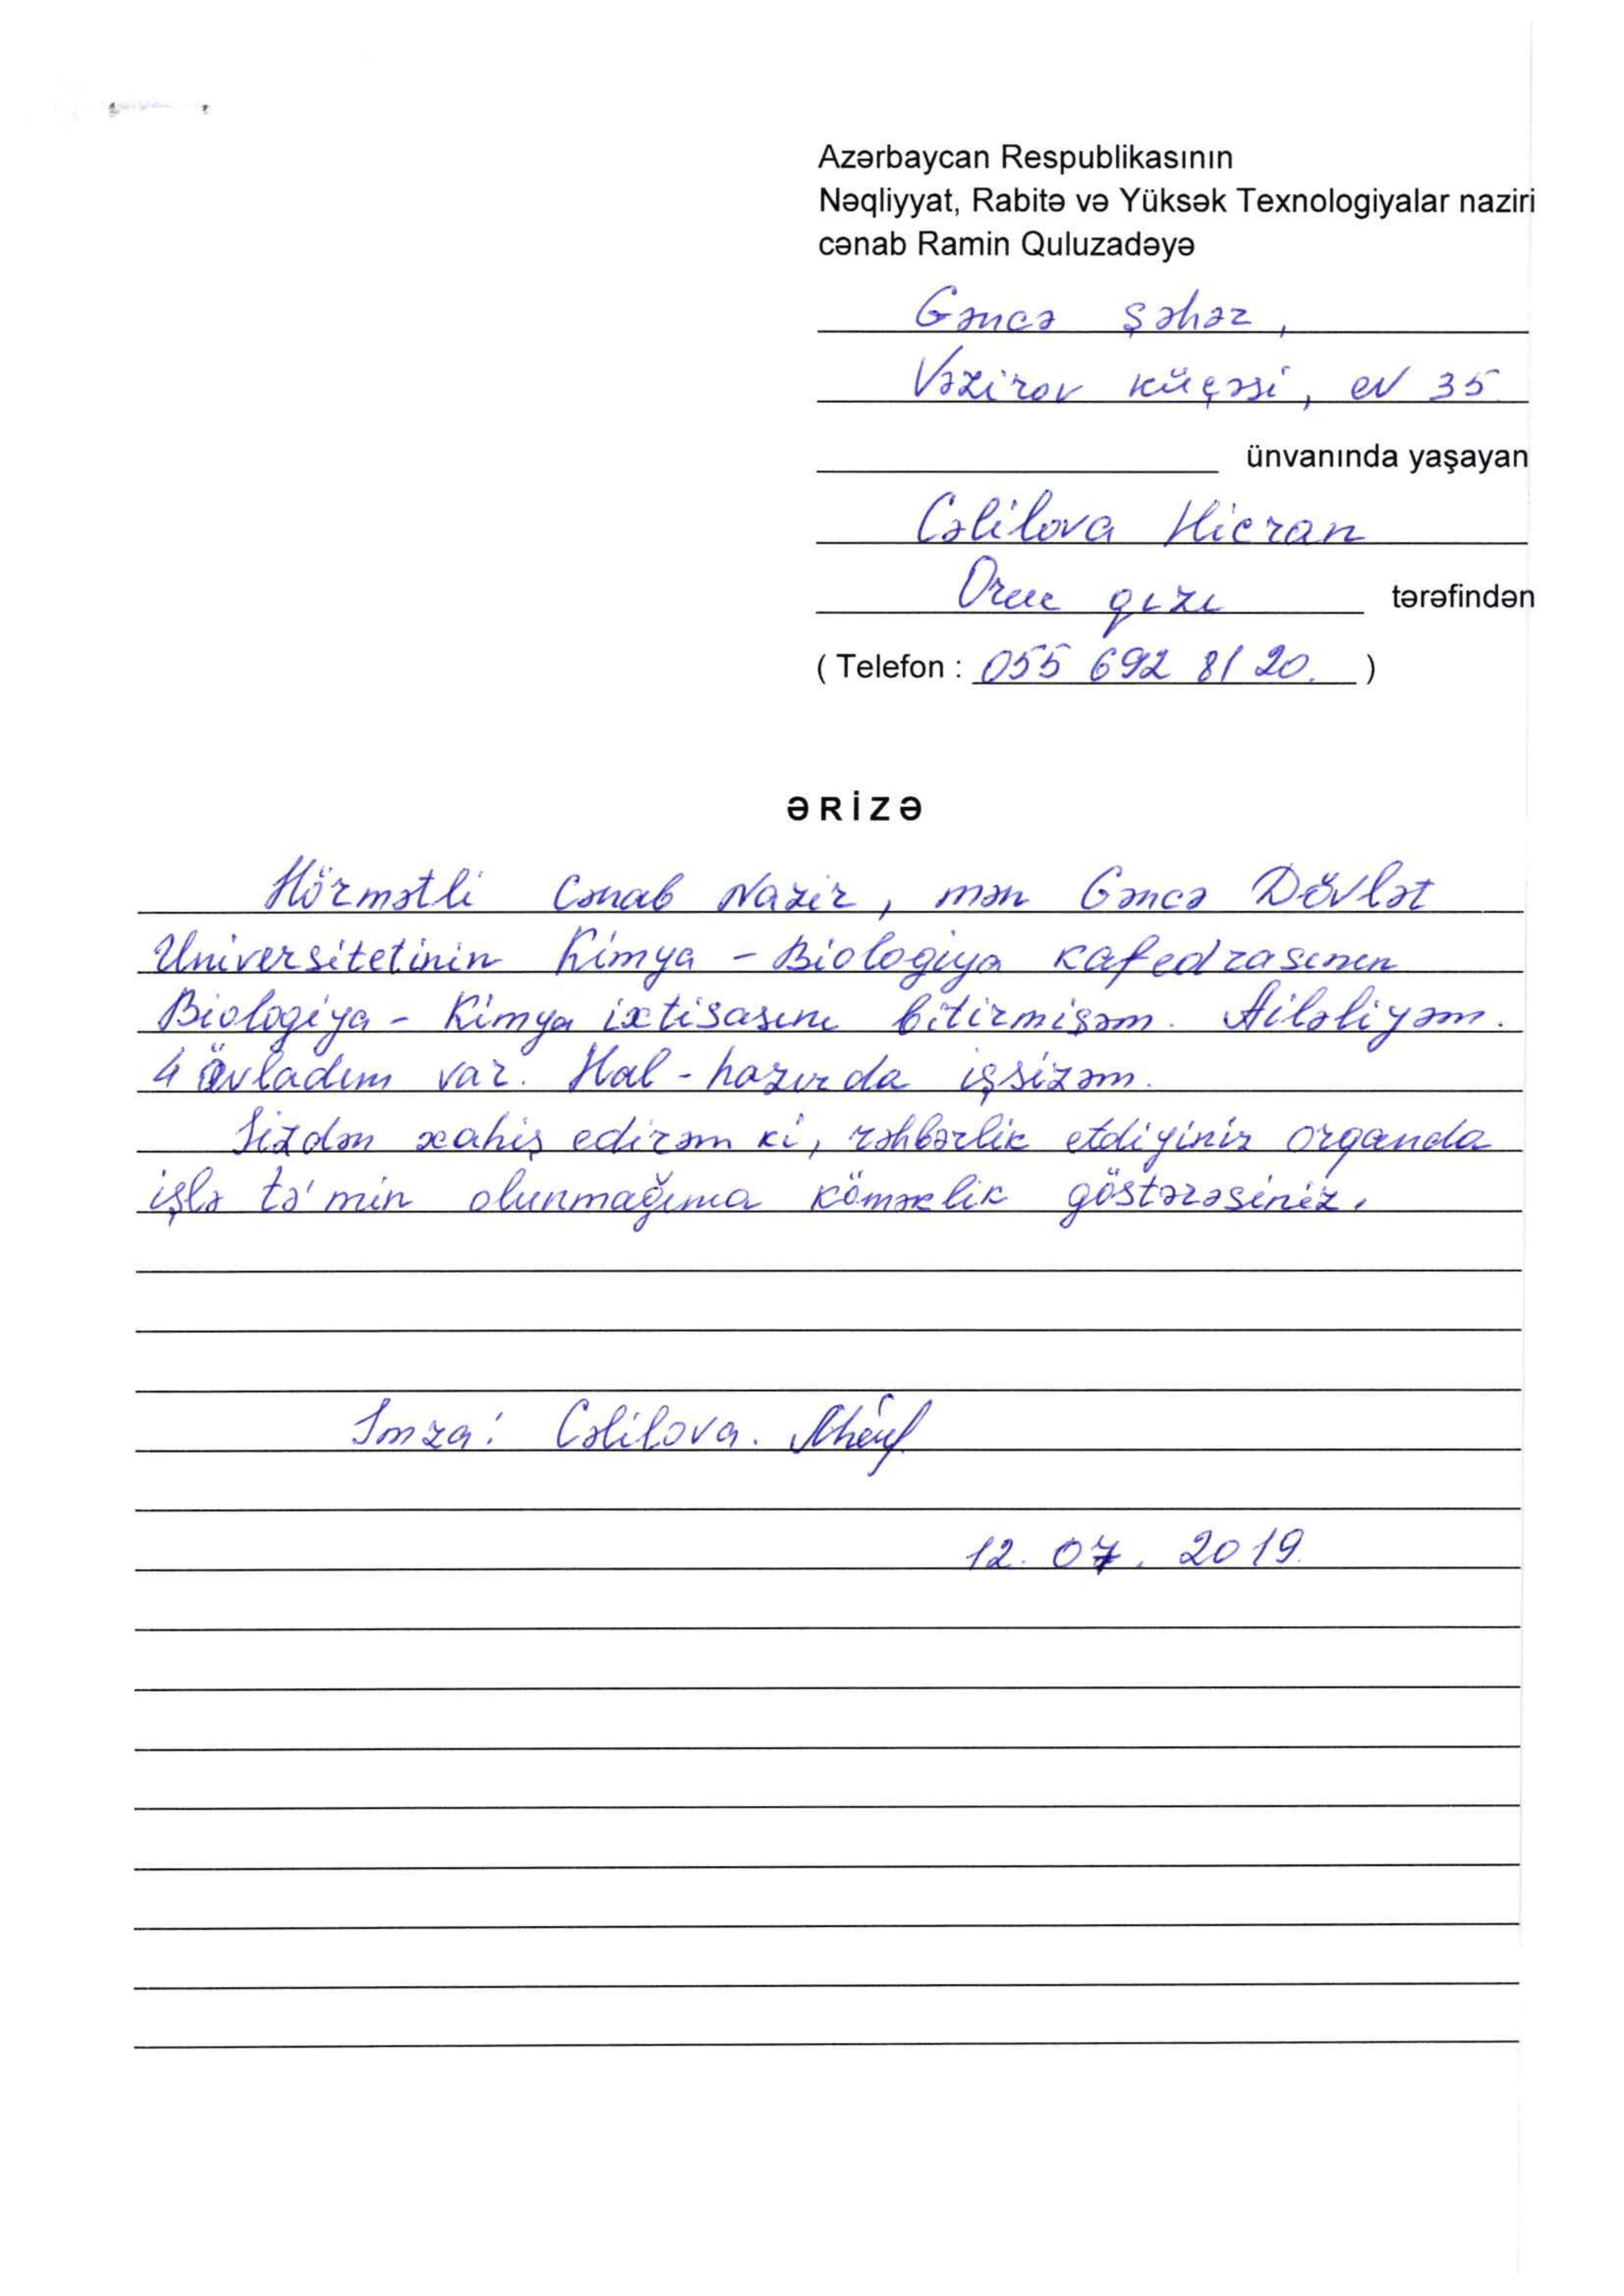 Azərbaycan Respublikasının
Nəqliyyat, Rabitə və Yüksək Texnologiyalar naziri
cənab Ramin Quluzadəyə
Gəncə şəhər,
Vəzirov küçəsi, ev 35.
ünvanında yaşayan
Cəlilova Hicran
Oruc qızı tərəfindən
( Telefon : 055 692 81 20. )
ƏRİZƏ
Hörmətli Cənab Nazir, mən Gəncə Dövlət
Universitetinin Kimya - Biologiya kafedrasının
Biologiya - Kimya ixtisasını bitirmişəm. Ailəliyəm.
4 övladım var. Hal - hazırda işsizəm.
Sizdən xahiş edirəm ki, rəhbərlik etdiyiniz organda
işlə tə'min olunmağıma köməklik göstərəsiniz.
Imza: Cəlilova.
12. 07. 2019.